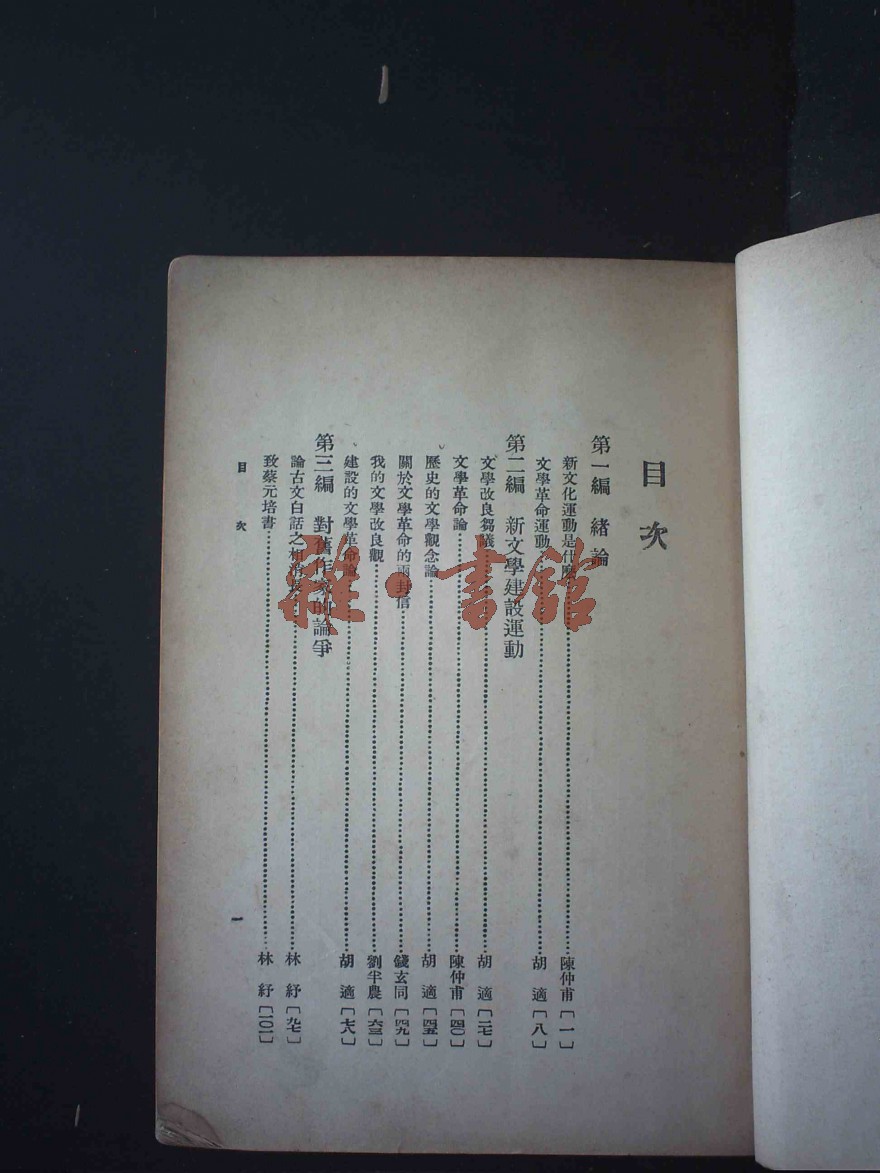 目次
第一編 緒論
新文化運動是什麼……陳仲甫〔一〕
文學革命運動……胡適〔八〕
第二編 新文學建設運動
文學改良芻議……胡適〔二七〕
文學革命論……陳仲甫〔四〇〕
歷史的文學觀念論……胡適〔四五〕
關於文學革命的兩封信……錢玄同〔四九〕
我的文學改良觀……劉半農〔六三〕
建設的文學革命論……胡適〔七八〕
第三編 對舊作家的論爭
論古文白話之相消長……林紓〔九七〕
致蔡元培書……林紓〔一〇一〕
目次
一
雅·書館